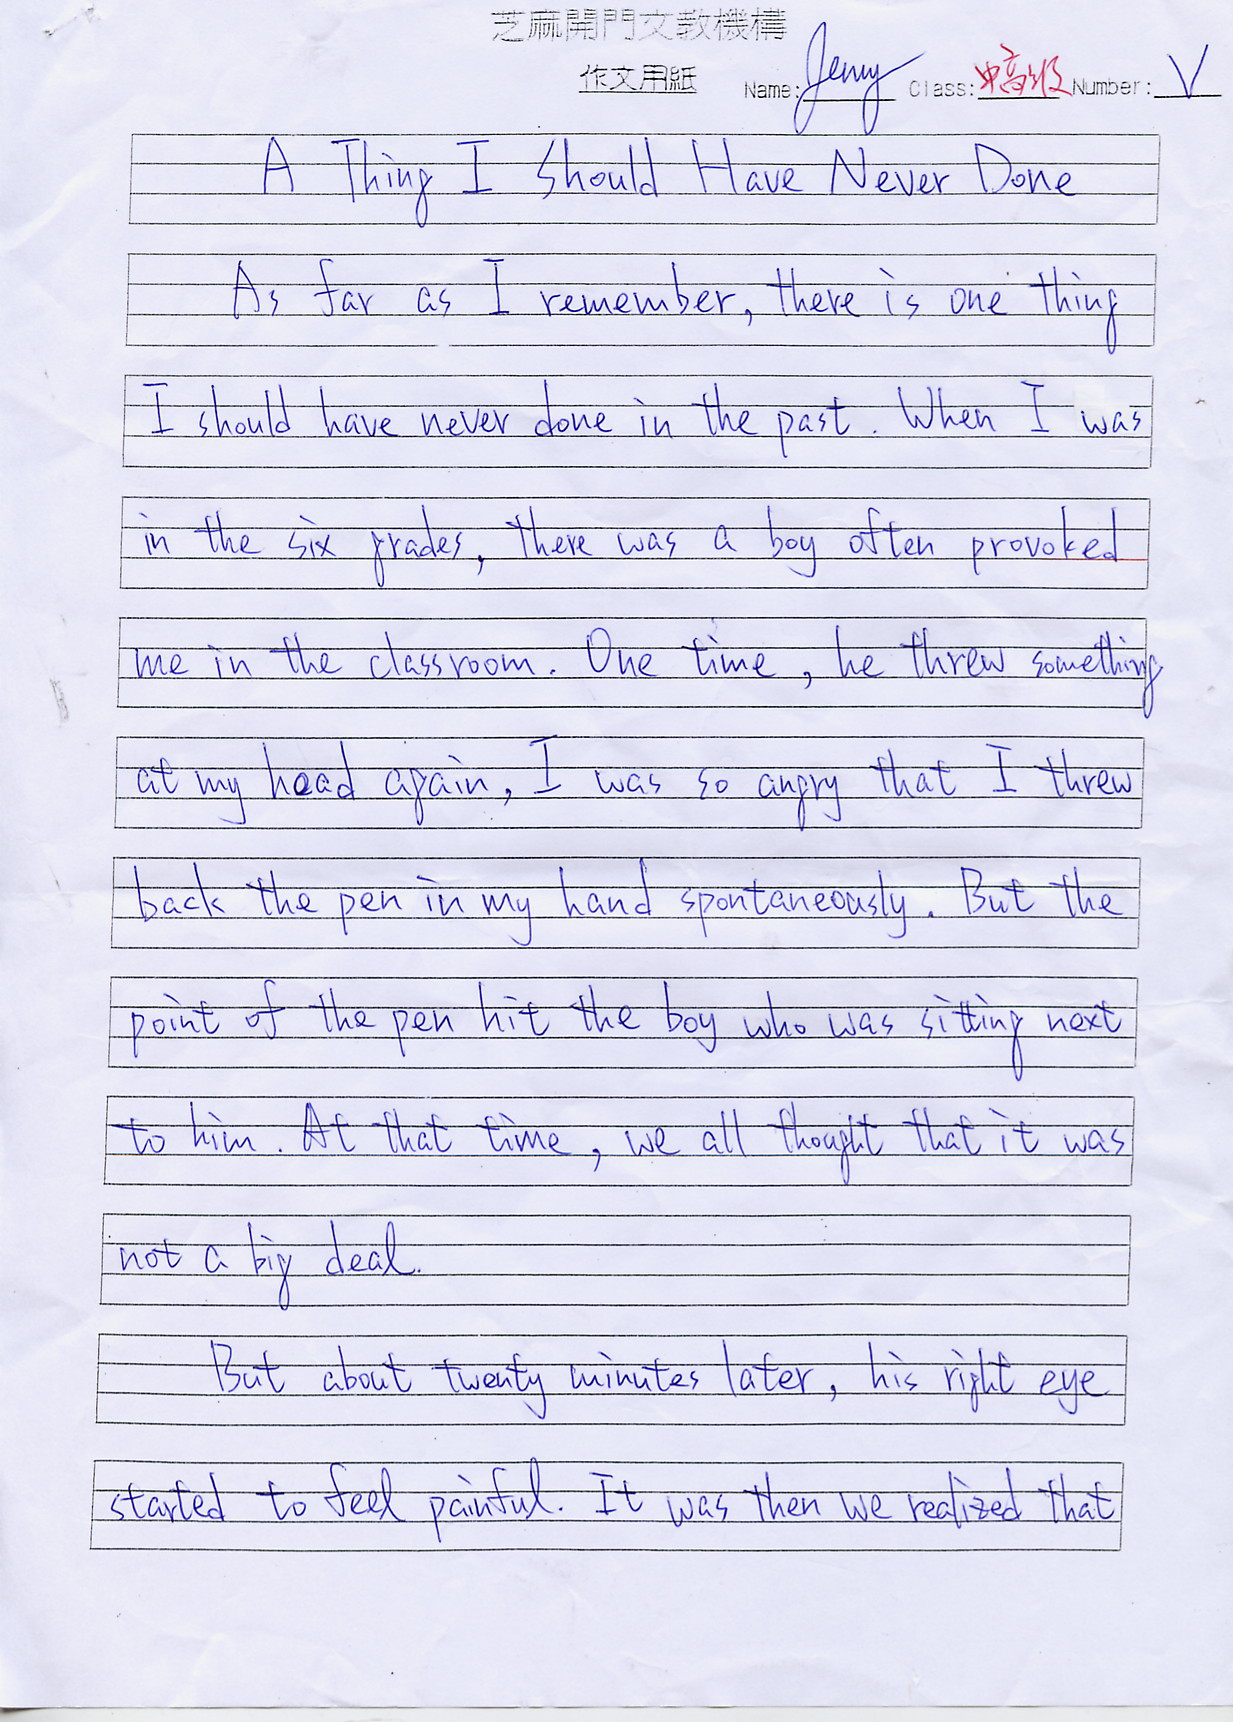 芝麻開門文教機構
作文用紙 Name: Jenny Class: 中高級 Number: V
A Thing I Should Have Never Done
As far as I remember, there is one thing
I should have never done in the past. When I was
in the six grades, there was a boy often provoked
me in the classroom. One time, he threw something
at my head again, I was so angry that I threw
back the pen in my hand spontaneously. But the
point of the pen hit the boy who was sitting next
to him. At that time, we all thought that it was
not a big deal.
But about twenty minutes later, his right eye
started to feel painful. It was then we realized that